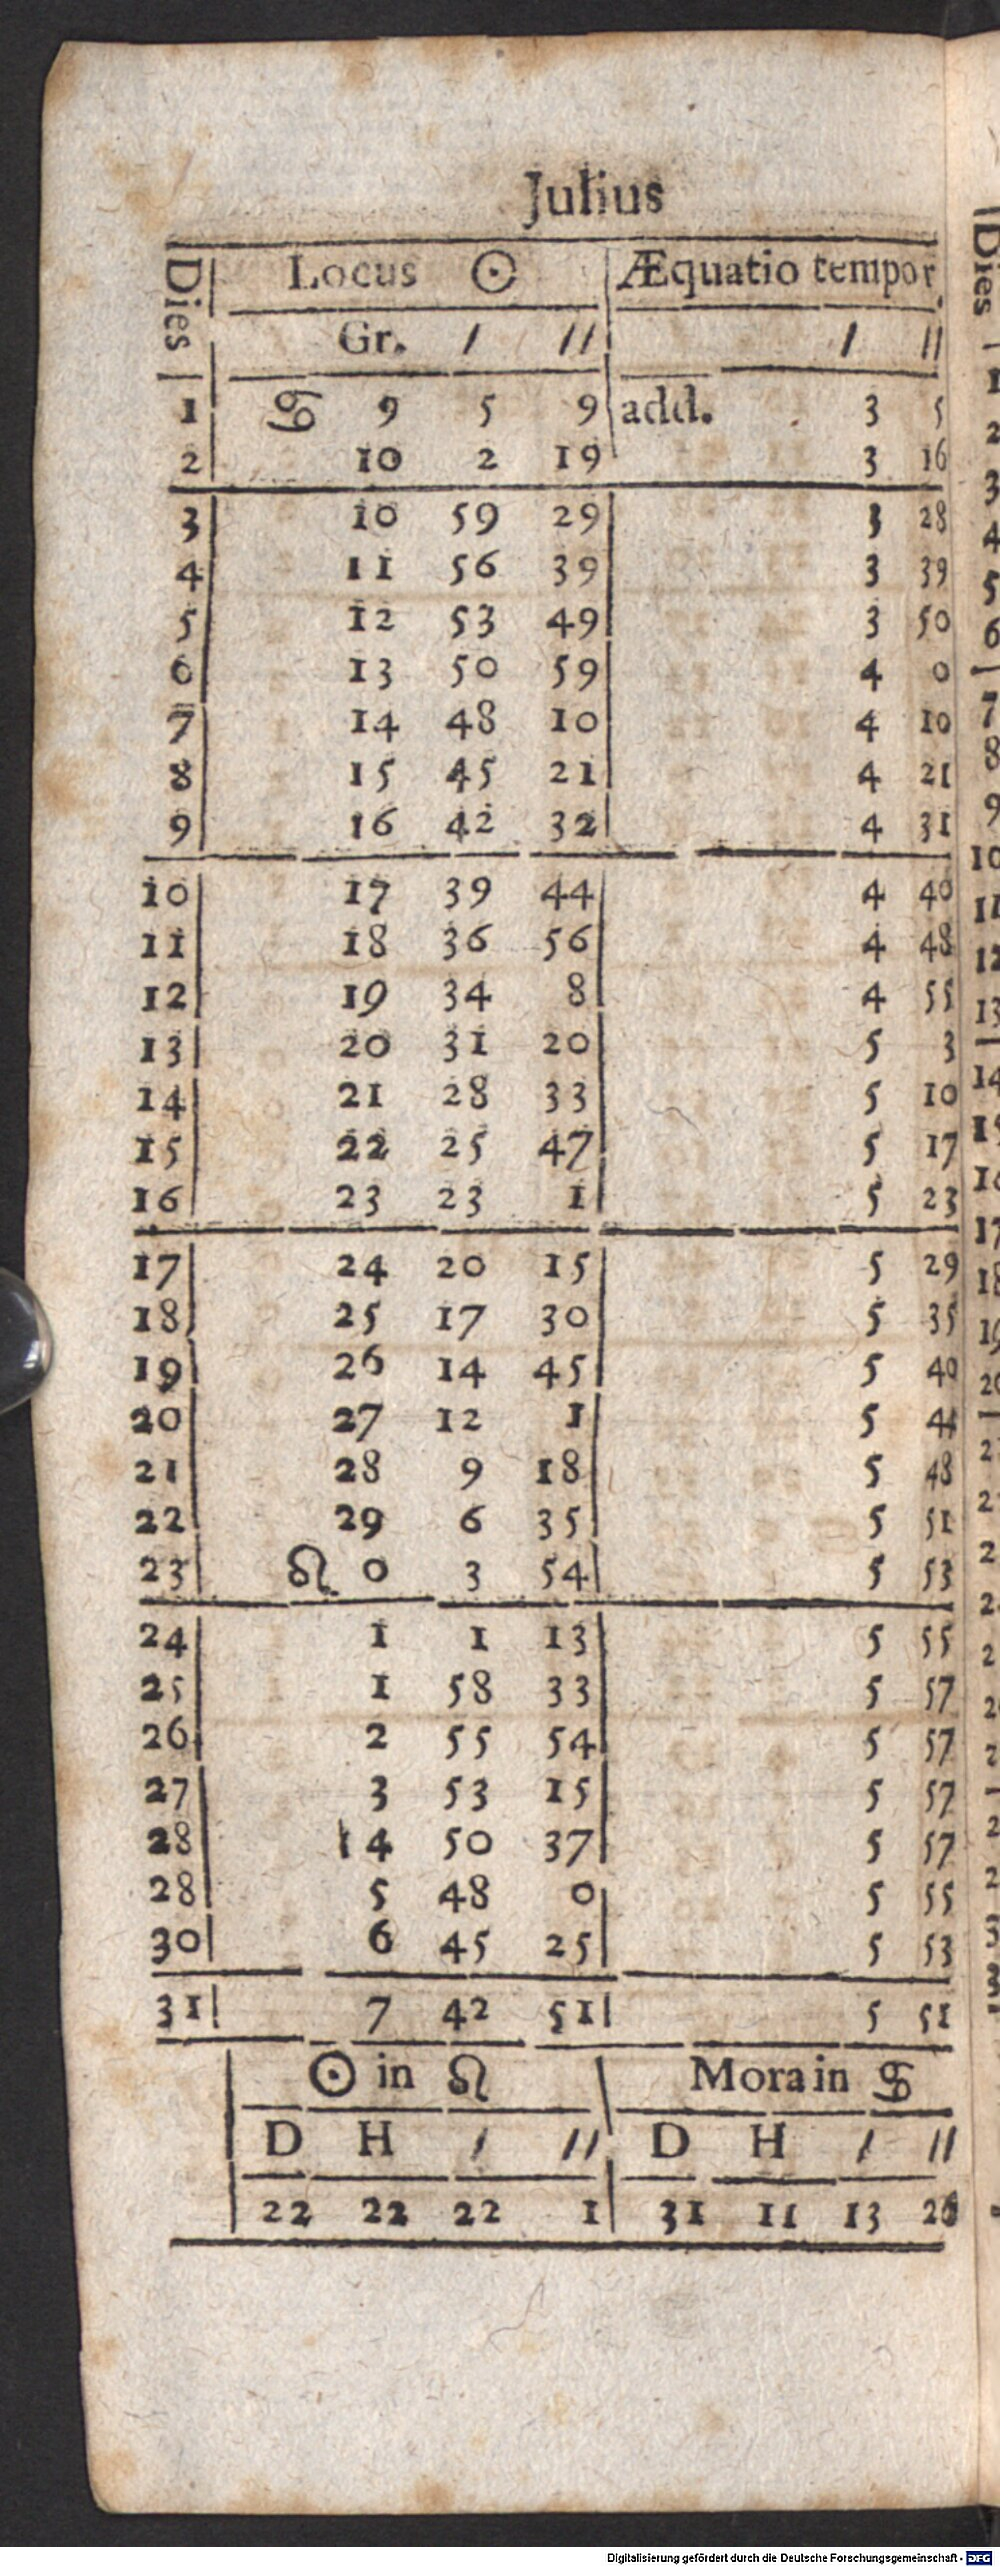 Julius
Dies Locus ☉ Æquatio tempor.
Gr. / // / //
1 ♋ 9 5 9 add. 3 5
2 10 2 19 3 16
3 10 59 29 3 28
4 11 56 39 3 39
5 12 53 49 3 50
6 13 50 59 4 0
7 14 48 10 4 10
8 15 45 21 4 21
9 16 42 32 4 31
10 17 39 44 4 40
11 18 36 56 4 48
12 19 34 8 4 55
13 20 31 20 5 3
14 21 28 33 5 10
15 22 25 47 5 17
16 23 23 1 5 23
17 24 20 15 5 29
18 25 17 30 5 35
19 26 14 45 5 40
20 27 12 1 5 44
21 28 9 18 5 48
22 29 6 35 5 51
23 ♌ 0 3 54 5 53
24 1 1 13 5 55
25 1 58 33 5 57
26 2 55 54 5 57
27 3 53 15 5 57
28 4 50 37 5 57
28 5 48 0 5 55
30 6 45 25 5 53
31 7 42 51 5 51
☉ in ♌ Mora in ♋
D H / // D H / //
22 22 22 1 31 11 13 26
Dies
1
2
3
4
5
6
7
8
9
10
11
12
13
14
15
16
17
18
19
20
Digitalisierung gefördert durch die Deutsche Forschungsgemeinschaft - DFG